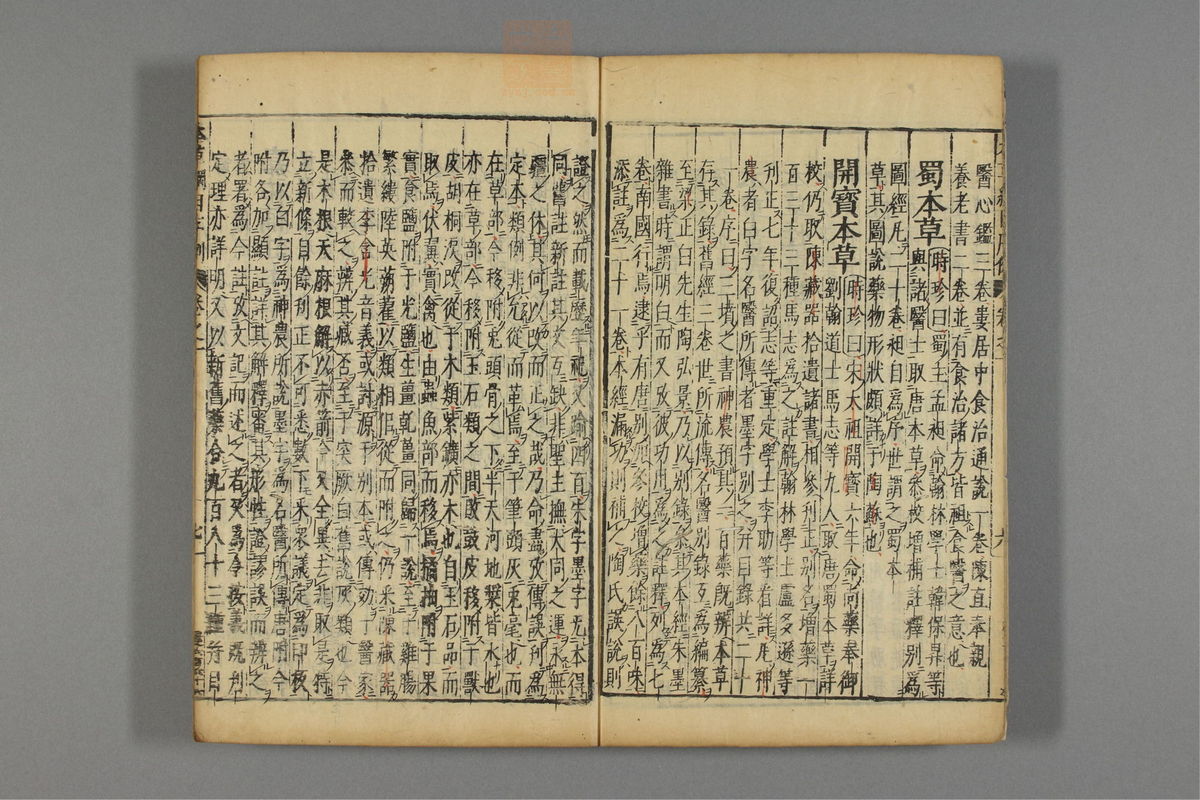 醫心鑑三卷婁居中食治通說一卷陳直奉親
養老書二卷並有食治諸方皆祖食醫之意也
蜀本草時珍曰蜀主孟昶命翰林學士韓保昇等
與諸醫士取唐本草參校增補註釋別爲
圖經凡二十卷昶自爲序世謂之蜀本
草其圖說藥物形狀頗詳于陶蘇也
開寶本草時珍曰宋太祖開寶六年命尚藥奉御
劉翰道士馬志等九人取唐蜀本草詳
校仍取陳藏器拾遺諸書相參刋正別名增藥一
百三十三種馬志爲之註解翰林學士盧多遜等
刋正七年復詔志等重定學士李昉等看詳凡神
農者白字名醫所傳者墨字別之并目錄共二十
一卷序曰三墳之書神農預其一百藥既辨本草
存其錄舊經三卷世所流傳名醫別錄互爲編纂
至梁正白先生陶弘景乃以別錄參其本經朱墨
雜書時謂明白而又攷彼功用爲之註釋列爲七
卷南國行焉逮乎有唐別加參校增藥餘八百味
添註爲二十一卷本經漏功則補之陶氏誤說則
證之然而載歷年祀又踰四百朱字墨字无本得
同舊註新註其文互缺非聖主撫大同之運永無
疆之休其何以改而正之哉乃命盡攷傳誤刋爲
定本類例非允從而革焉至于筆頭灰兎毫也而
在草部今移附兎頭骨之下半天河地漿皆水也
亦在草部今移附玉石類之間敗鼓皮移附于獸
皮胡桐淚改從于木類紫鑛亦木也自玉石品而
取焉伏翼實禽也由蟲魚部而移焉橘柚附于果
實食鹽附于光鹽生薑乾薑同歸一說至于雞腸
繁縷陸英蒴藋以類相似從而附之仍采陳藏器
拾遺李含光音義或討源于別本或傳効于醫家
參而較之辨其臧否至于突厥白舊說灰類也今
是木根天麻根解似赤箭今又全異去非取是特
立新條自餘刋正不可悉數下采衆議定爲印板
乃以白字爲神農所說墨字爲名醫所傳唐附今
附各加顯註詳其解釋審其形性證謬誤而辨之
者署爲今註攷文記而述之者又爲今按義既刋
定理亦詳明又以新舊藥合九百八十三種并目